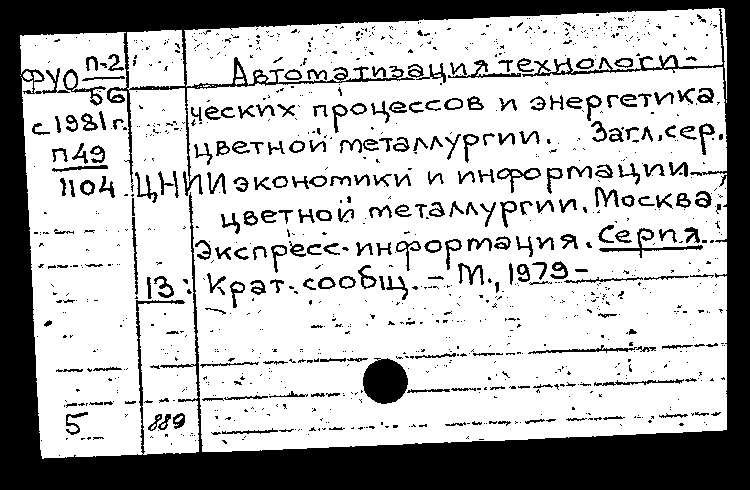 ФУО п-2
56
Автоматизация технологи-
ческих процессов и энергетика
с 1981 г.
цветной металлургии. Загл. сер.
п49
1104
ЦНИИ экономики и информации
цветной металлургии. Москва.
Экспресс-информация. Серия
13: Крат. сообщ. – М., 1979–
5
889